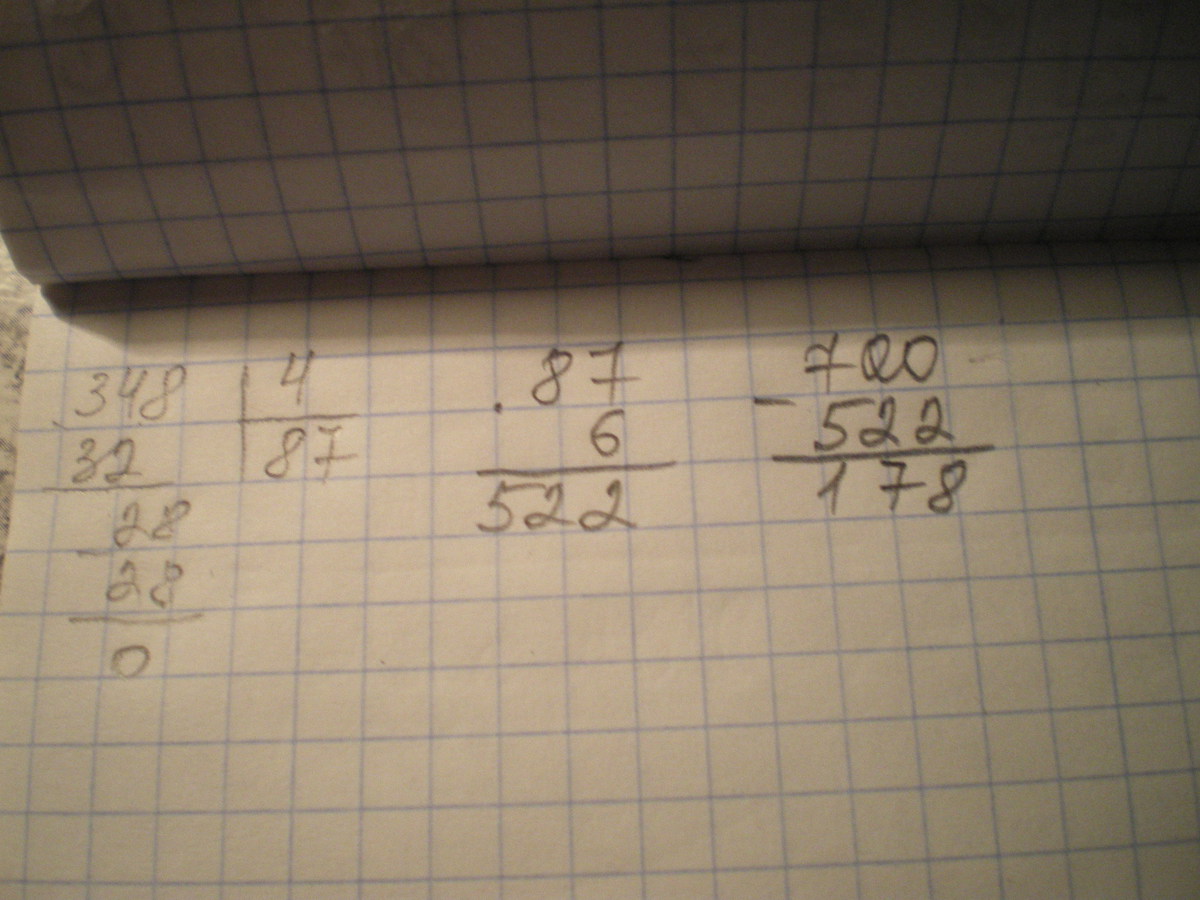 348 4
32 87
28
28
0
. 87
6
522
700
- 522
178